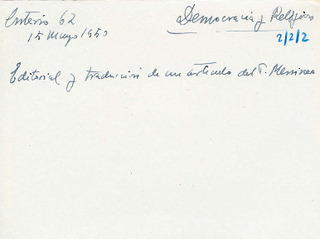 Criterio 62
Democracia y Religión
15 Mayo 1950
2/2/2
Editorial y traducción de un artículo del P. Messineo